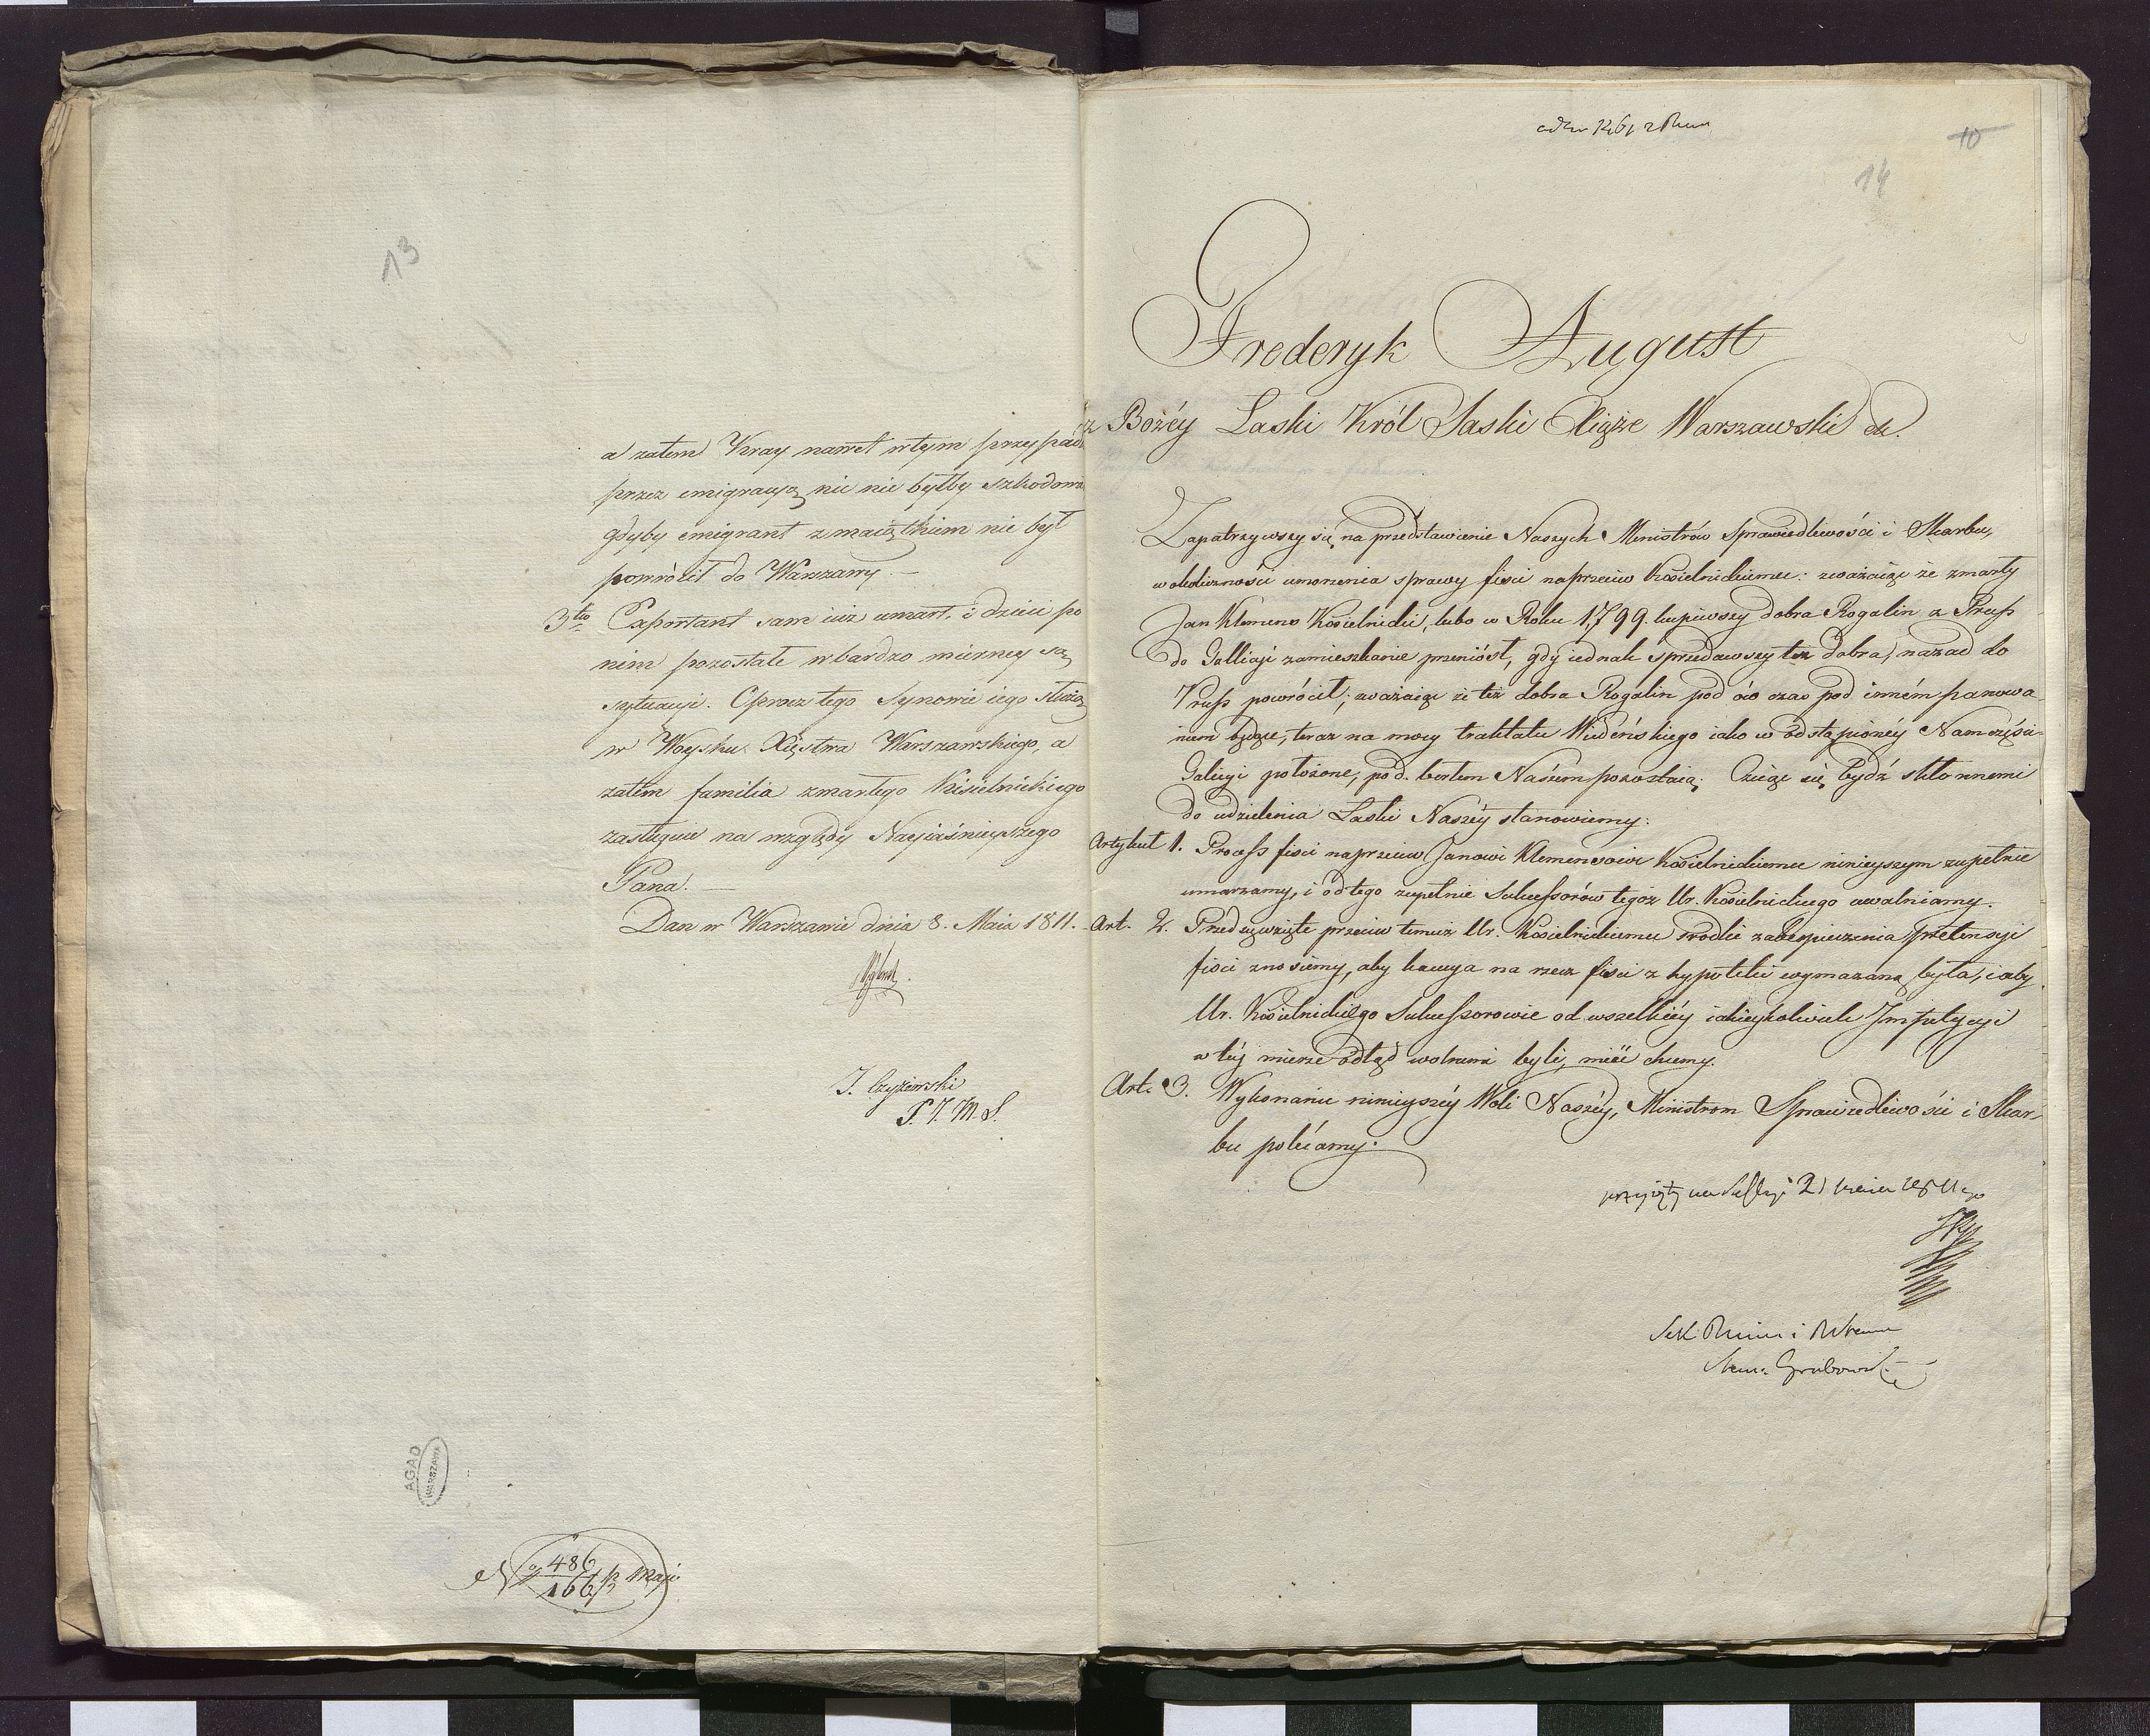 13
a zatem Kray nawet wtym przypad
przez emigracyą nic nie byłby szkodowa
gdyby emigrant z maiątkiem nie był
powrócił do Warszawy. —
3tio Exportant sam iuż umarł, i dzieci po
nim pozostałe w bardzo mierney są
sytuacyi. Oprocz tego Synowie iego służą
w Woysku Xięstwa Warszawskiego, a
zatem familia zmarłego Kisielnickiego
zasługuie na względy Nayiaśnieyszego
Pana. —
Dan w Warszawie dnia 8. Maia 1811.
J. Czyżewski
P. J. M. S.
AGAD
WARSZAWA
486
166/3 Maji
10
14
Frederyk August
z Bożéy Łaski Król Saski Xiąże Warszawski etc.
Zapatrzywszy się na przedstawienie Naszych Ministrów Sprawiedliwości i Skarbu,
w okoliczności umorzenia sprawy fisci naprzeciw Kisielnickiemu: zważaiąc że zmarły
Jan Klemens Kisielnicki, lubo w Roku 1799. kupiwszy dobra Rogalin z Pruss
do Gallicyi zamieszkanie przeniósł, gdy iednak sprzedawszy też dobra, nazad do
Pruss powrócił; zważaiąc że też dobra Rogalin pod ów czas pod inném panowa
niem będące, teraz na mocy traktatu Wiedeńskiego iako w odstąpionéy Nam części
Galicyi położone, pod berłem Naszem pozostaią; Czuiąc się bydź skłonnemi
do udzielenia Łaski Naszéy stanowiemy:
Artykuł 1. Process fisci naprzeciw Janowi Klemensowi Kisielnickiemu ninieyszym zupełnie
umarzamy, i od tego zupełnie Sukcessorów tegoż Ur. Kisielnickiego uwalniamy.
Art. 2. Przedsięwzięte przeciw temuż Ur. Kisielnickiemu srodki zabezpieczenia pretensyi
fisci znosiemy, aby kaucya na rzecz fisci z hypoteki wymazana była, i aby
Ur. Kisielnickiego Sukcessorowie od wszelkiéy iakieykolwiek Impetycyi
w téj mierze odtąd wolnemi byli, mieć chcemy.
Art. 3. Wykonanie ninieyszéy Woli Naszéy, Ministrom Sprawiedliwości i Skar
bu polecamy.
przyięty na Sessyi 21 maia 1811 go
Grabowski